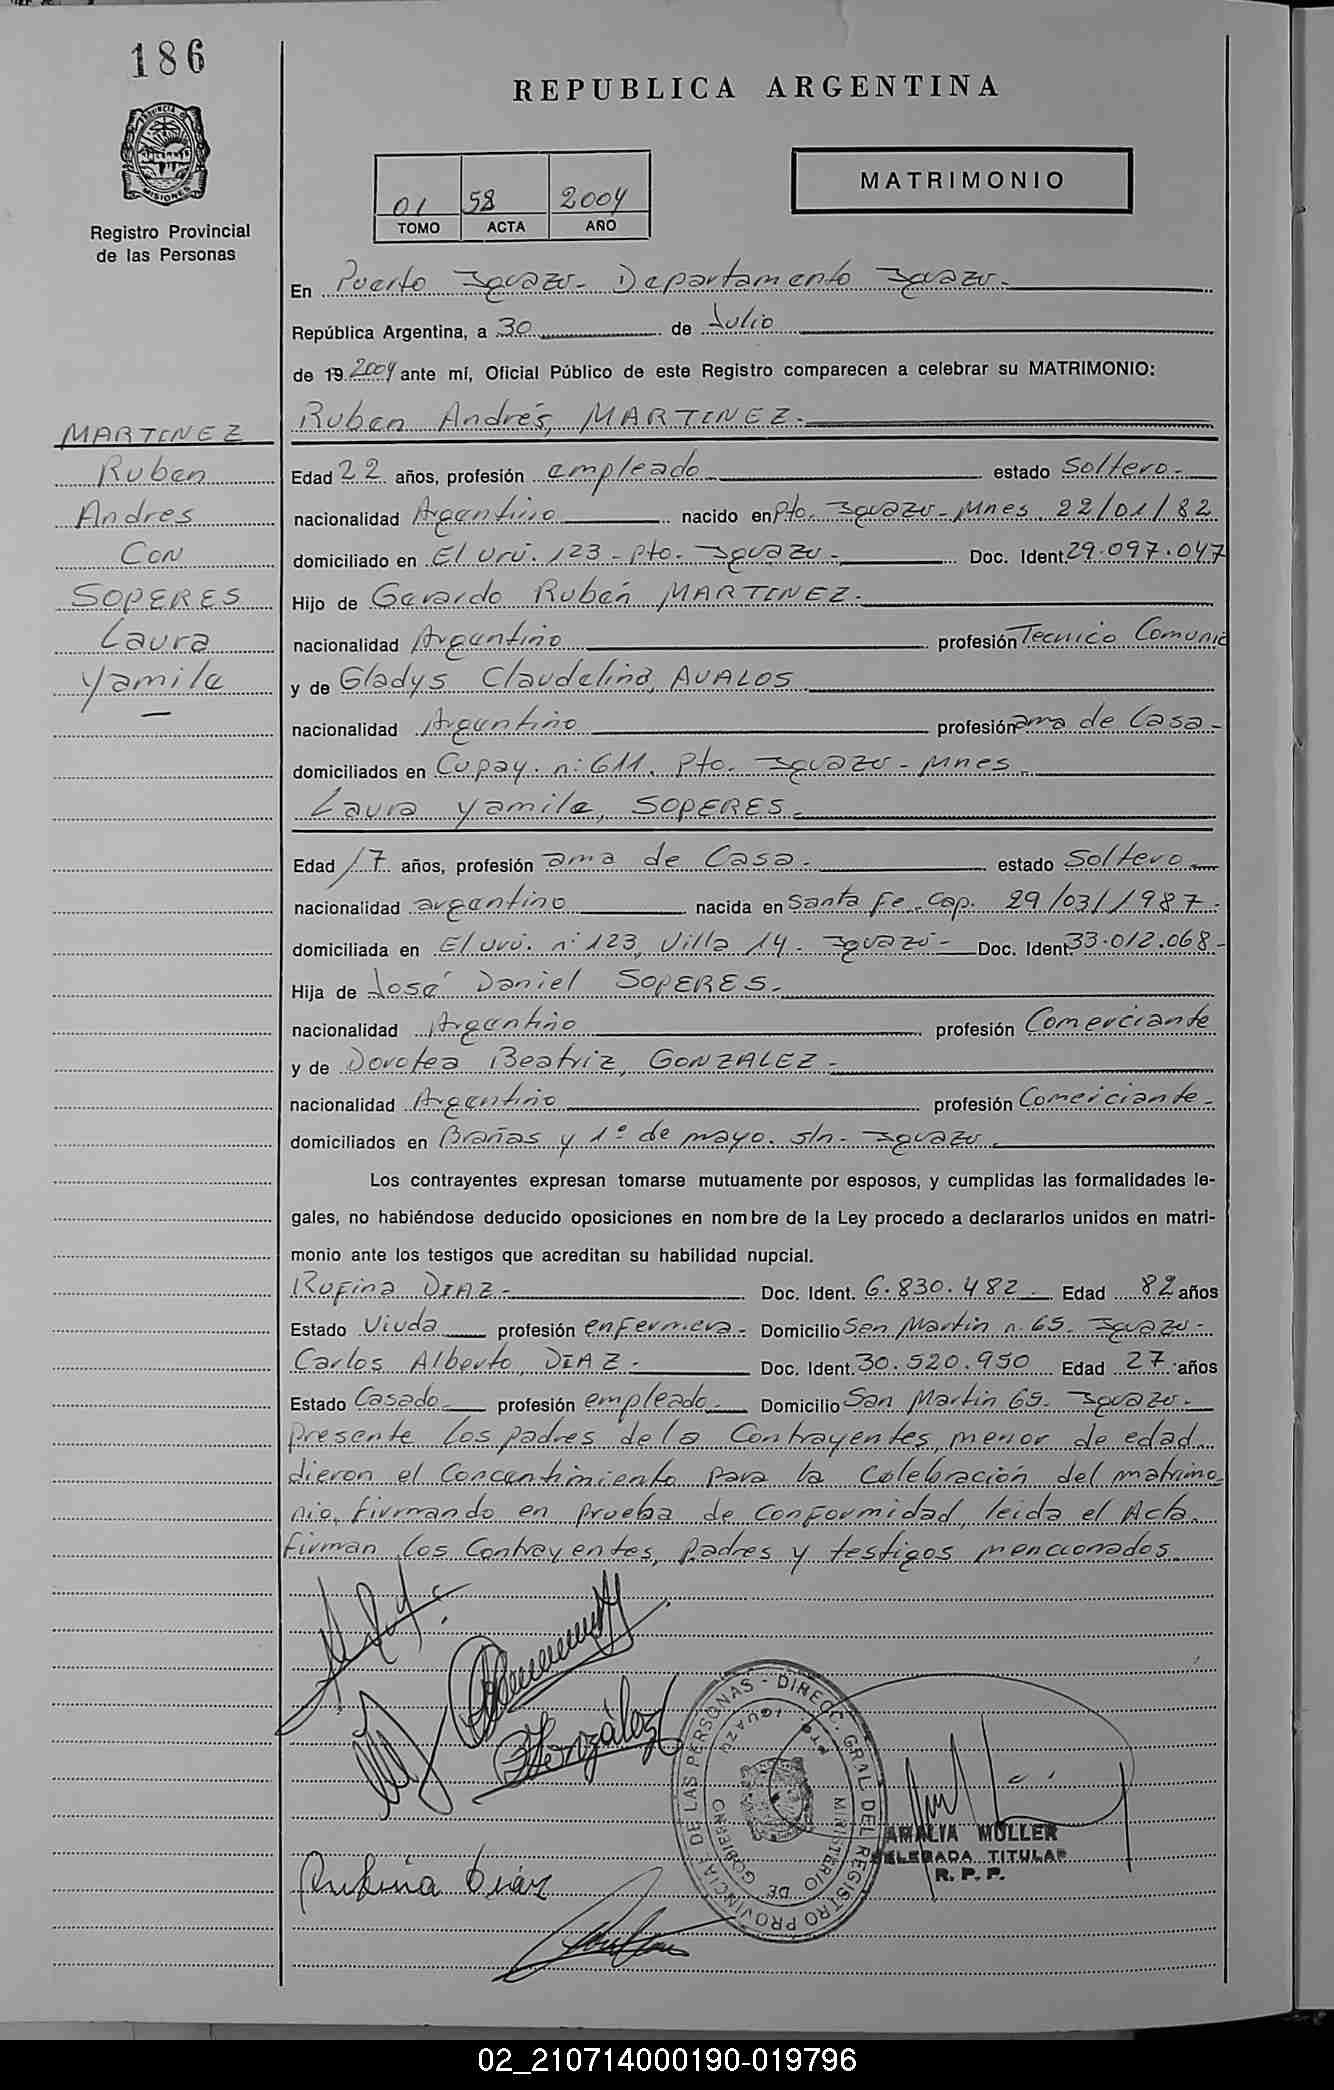 186
REPUBLICA ARGENTINA
PROVINCIA DE MISIONES
Registro Provincial
de las Personas
01 58 2004
TOMO ACTA AÑO
MATRIMONIO
En Puerto Iguazu - Departamento Iguazu -
República Argentina, a 30 de Julio
de 19 2004 ante mí, Oficial Público de este Registro comparecen a celebrar su MATRIMONIO:
Ruben Andrés, MARTINEZ -
MARTINEZ
Ruben
Andres
Con
SOPERES
Laura
Yamile
Edad 22 años, profesión empleado estado Soltero -
nacionalidad Argentino nacido en Pto. Iguazu - Mnes. 22/01/82
domiciliado en El Urú. 123 - Pto. Iguazu - Doc. Ident. 29.097.047
Hijo de Gerardo Rubén MARTINEZ -
nacionalidad Argentino profesión Tecnico Comunic
y de Gladys Claudelina, AVALOS
nacionalidad Argentino profesión ama de Casa -
domiciliados en Cupay. n: 611. Pto. Iguazu - Mnes -
Laura Yamile, SOPERES -
Edad 17 años, profesión ama de Casa - estado Soltero -
nacionalidad argentino nacida en Santa Fe. Cap. 29/03/1987 -
domiciliada en El urú. n: 123, Villa 14 - Iguazú - Doc. Ident. 33.012.068 -
Hija de José Daniel SOPERES -
nacionalidad Argentino profesión Comerciante
y de Dorotea Beatriz, GONZALEZ -
nacionalidad Argentino profesión Comerciante -
domiciliados en Brañas y 1º de mayo. s/n - Iguazu -
Los contrayentes expresan tomarse mutuamente por esposos, y cumplidas las formalidades le-
gales, no habiéndose deducido oposiciones en nombre de la Ley procedo a declararlos unidos en matri-
monio ante los testigos que acreditan su habilidad nupcial.
Rufina DIAZ - Doc. Ident. 6.830.482 Edad 82 años
Estado Viuda profesión enfermera - Domicilio San Martin n. 65 - Iguazu -
Carlos Alberto, DIAZ - Doc. Ident. 30.520.950 Edad 27 años
Estado Casado profesión empleado Domicilio San Martin 65 - Iguazu -
Presente los padres de la Contrayentes, menor de edad
dieron el Concentimiento para la Celebración del matrimo-
nio, firmando en prueba de Conformidad, leida el Acta
firman los Contrayentes, Padres y testigos mencionados
González
DIRECC. GRAL. DEL REGISTRO PROVINCIAL DE LAS PERSONAS
MINISTERIO DE GOBIERNO
PTO. IGUAZU
AMALIA MÜLLER
DELEGADA TITULAR
R. P. P.
Rufina Diaz
02_210714000190-019796